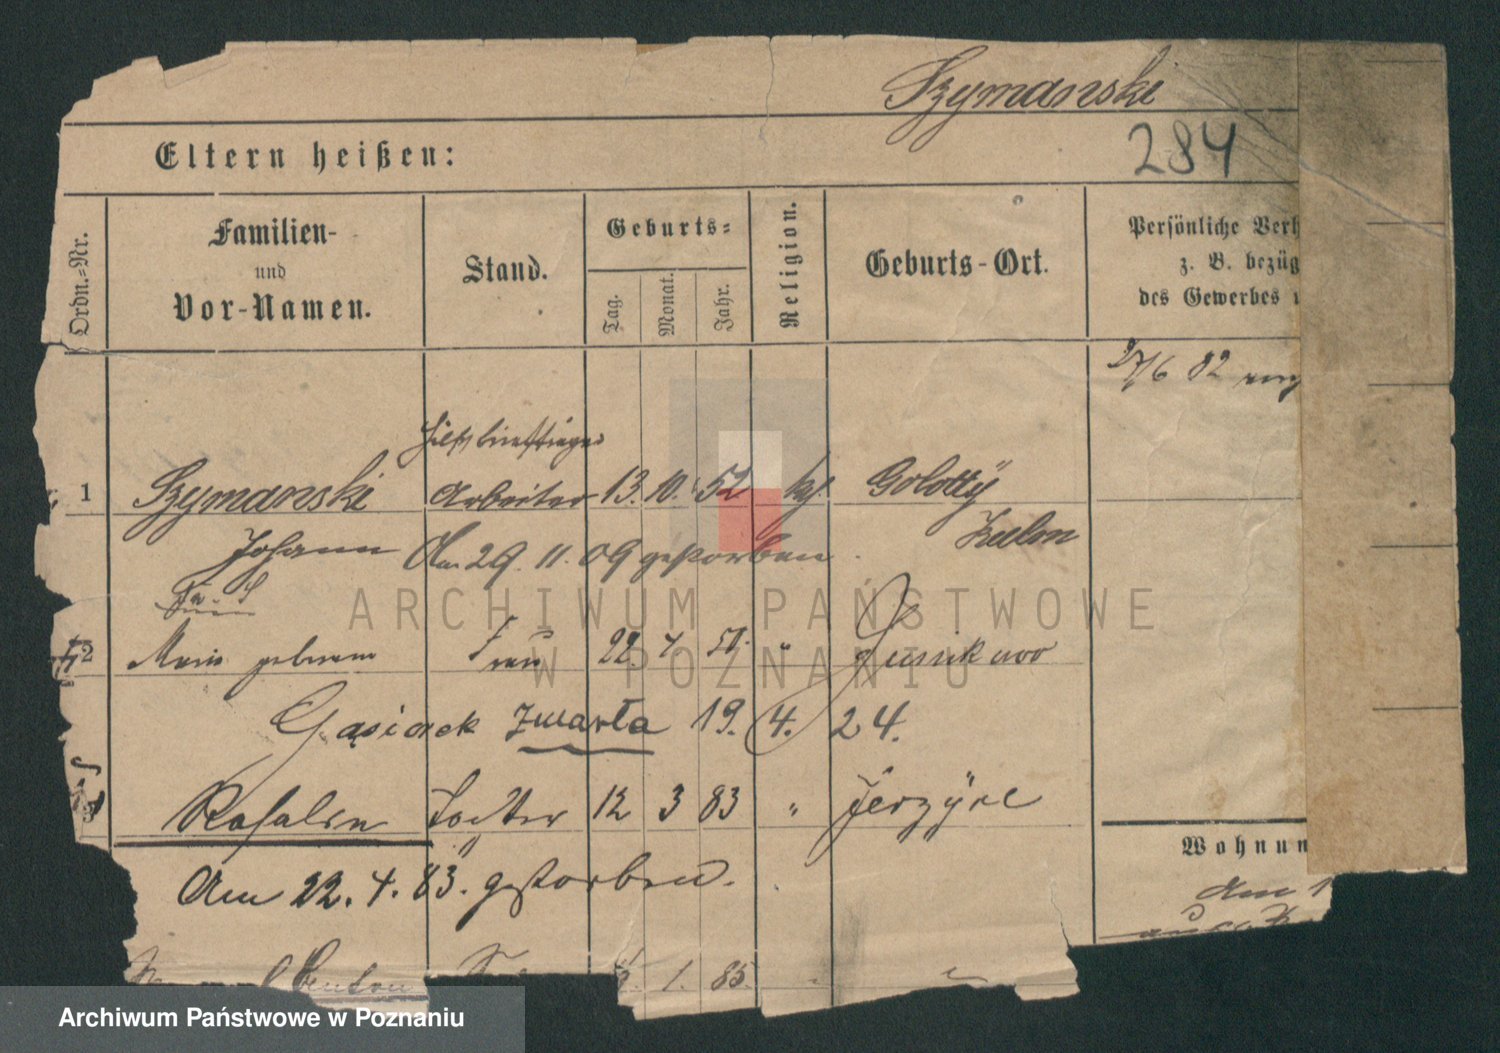 Szymanski
284
Eltern heißen:
Ordn.-Nr.
Familien-
und
Vor-Namen.
Stand.
Geburts-
Tag.
Monat.
Jahr.
Religion.
Geburts-Ort.
Persönliche Verh
z. B. bezüg
des Gewerbes
27/6 82
Hilfsbriefträger
1 Szymanski Arbeiter 13. 10. 52 kf. Golotty
Johann Am 29. 11. 09 gestorben Kulm
2 Marie geborene Frau 22. 4 50. "
Gąsiorek zmarła 19. 4. 24.
Rosalie Tochter 12 3 83 " Jerzyce
Am 22. 4. 83. gestorben.
Wohnun
Am 1
1. 85.
ARCHIWUM PAŃSTWOWE
W POZNANIU
Archiwum Państwowe w Poznaniu